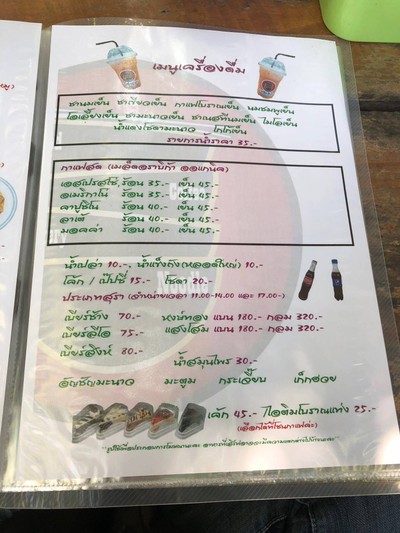 เมนูเครื่องดื่ม
ชานมเย็น ชาเขียวเย็น กาแฟโบราณเย็น นมชมพูเย็น
โอเลี้ยงเย็น ชามะนาวเย็น ชาเนสทีนมเย็น ไมโลเย็น
น้ำแดงโซดามะนาว โกโก้เย็น
รายการน้ำราคา 35.-
กาแฟสด (เมล็ดอราบิก้า ออแกนิค)
เอสเปรสโซ่ ร้อน 35.- เย็น 45.-
อเมริกาโน่ ร้อน 35.- เย็น 45.-
คาปูชิโน่ ร้อน 40.- เย็น 45.-
ลาเต้ ร้อน 40.- เย็น 45.-
มอคค่า ร้อน 40.- เย็น 45.-
น้ำเปล่า 10.-, น้ำแข็งถัง(หลอดใหญ่) 10.-
โค้ก / เป๊ปซี่ 15.- โซดา 20.-
ประเภทสุรา (จำหน่ายเวลา 11.00-14.00 และ 17.00-)
เบียร์ช้าง 70.- หงษ์ทอง แบน 180.- กลม 320.-
เบียร์ลีโอ 75.- แสงโสม แบน 180.- กลม 320.-
เบียร์สิงห์ 80.-
น้ำสมุนไพร 30.-
อัญชัญมะนาว มะตูม กระเจี๊ยบ เก็กฮวย
เค้ก 45.- ไอติมโบราณแท่ง 25.-
(เลือกได้ที่โซนกาแฟค่ะ)